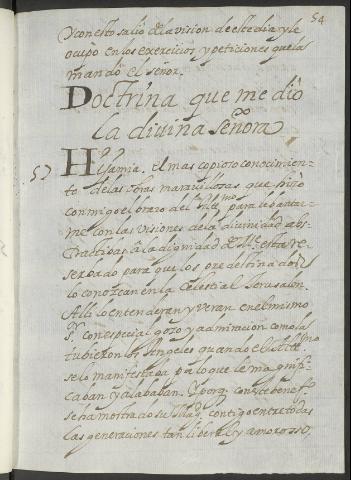 54
Y con esto salio de la vision de este dia y se
ocupò en los exercicios y peticiones que la
mandò el señor.
Doctrina que me diò
la diuina Señora
57 Hija mia, el mas copioso conocimien-
to de las obras marauillosas que hizo
conmigo el brazo del Altmo. para leuantar-
me con las visiones de la diuinidad abs-
tractiuas â la dignidad de Me. esta re-
serbado para que los predestinados
lo conozcan en la celestial Jerusalen.
Alli lo entenderan y veran en el mismo
Sr. con especial gozo y admiracion como la
tubieron los Angeles quando el Altmo.
se lo manifestaba por lo que le magnifi-
caban y alababan. Y porq. con este benefo.
se ha mostrado su Magd. contigo entre todas
las generaciones tan liberal y amoroso